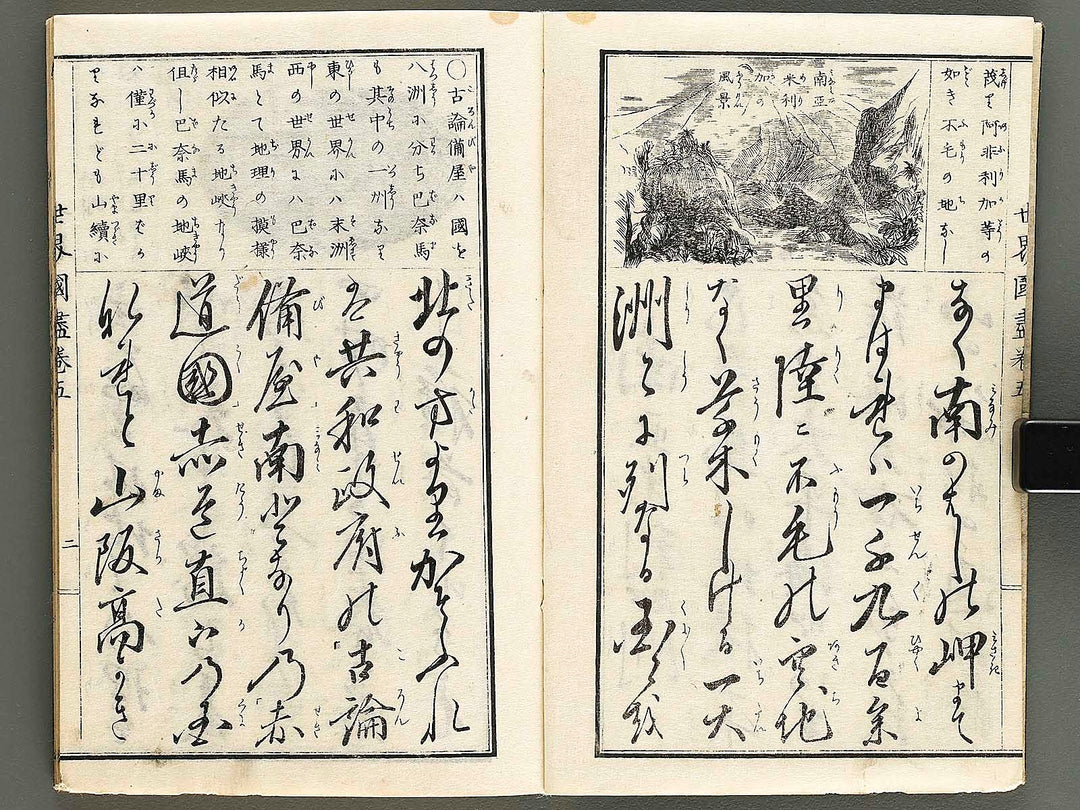 世界國盡巻五
茂り阿非利加等の
如き不毛の地なし
南亜
米利
加の
風景
なく南のはしの岬まで
まはれは一千九百余
里陸に不毛の空地
なく草木しげる一大
洲こゝに列なる国
○古論備屋ハ國を
八洲に分ち巴奈馬
も其中の一州なり
東の世界にハ末洲
西の世界にハ巴奈
馬とて地理の模様
相似たる地峡なり
但し巴奈馬の地峡
ハ僅に二十里ばか
りなれども山續に
北の方よりかぞふれ
ば共和政府の古論
備屋南となりの赤
道國赤道直下の国
なれど山阪高き
世界國盡巻五
二